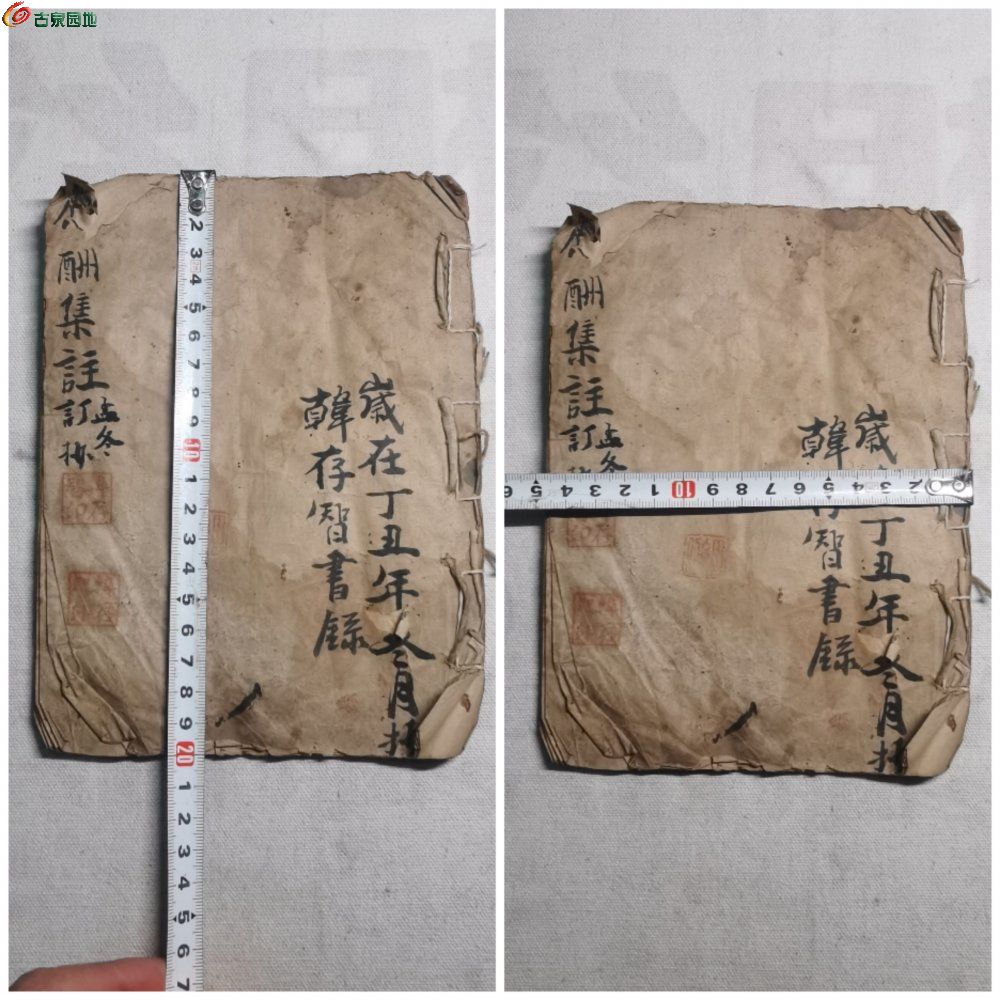 古泉园地
歲在丁丑年冬月抄
韓存智書錄
酬集註
孟冬
訂抄
2 3 4 5 6 7 8 9 10 1 2 3 4 5 6 7 8 9 20 1 2 3 4 5 6 7
歲丁丑年冬月抄
韓存智書錄
酬集註
孟冬
訂
6 5 4 3 2 1 10 9 8 7 6 5 4 3 2